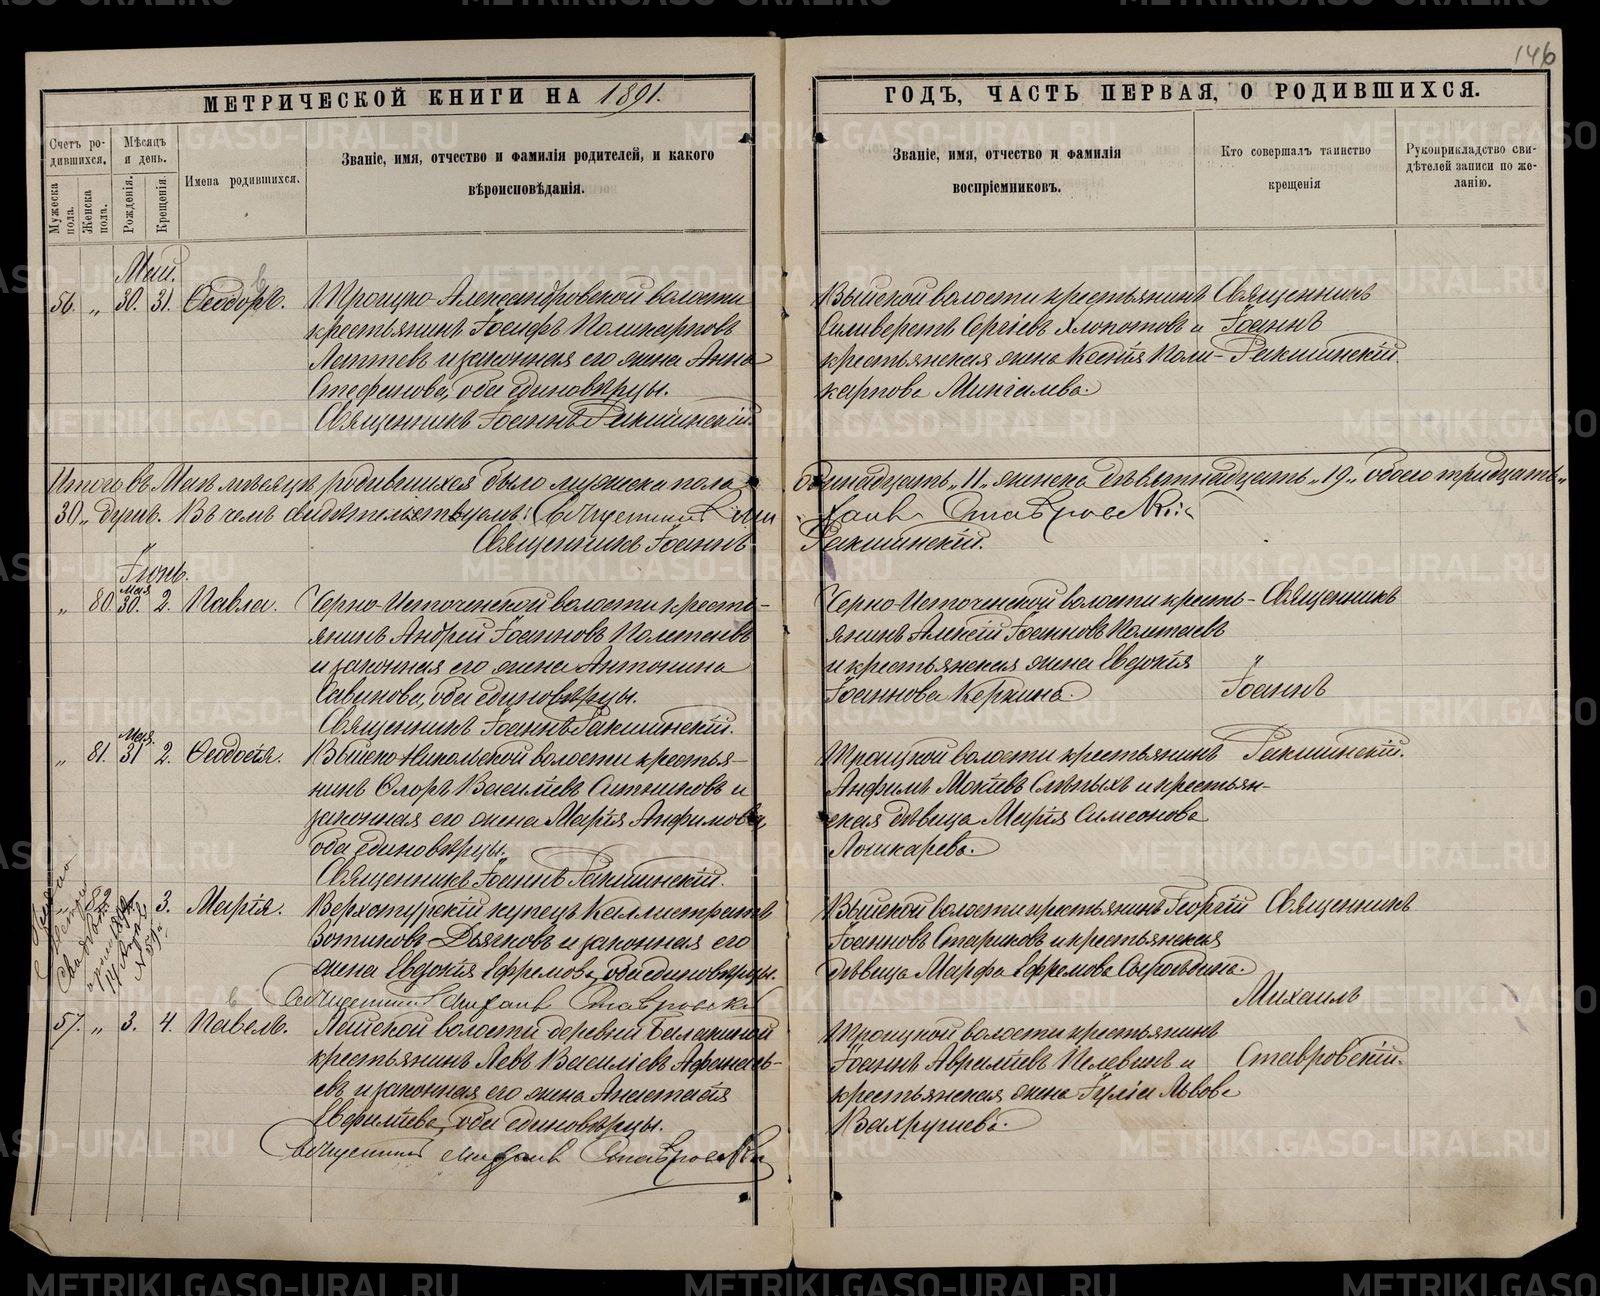 146
МЕТРИЧЕСКОЙ КНИГИ НА 1891.
ГОДЪ, ЧАСТЬ ПЕРВАЯ, О РОДИВШИХСЯ.
Счетъ ро-
дившихся.
Мужеска пола.
Женска пола.
Мѣсяцъ
и день.
Рожденія.
Крещенія.
Имена родившихся.
Званіе, имя, отчество и фамилія родителей, и какого
вѣроисповѣданія.
Званіе, имя, отчество и фамилія
воспріемниковъ.
Кто совершалъ таинство
крещенія
Рукоприкладство сви-
дѣтелей записи по же-
ланію.
Май.
56. „ 30. 31. Ѳеодоръ.
Троицко-Александровской волости
крестьянинъ Іосифъ Поликарповъ
Лаптевъ и законная его жена Анна
Стефанова, оба единовѣрцы.
Священникъ Іоаннъ Ракшинскій.
Выйской волости крестьянинъ
Сильверстъ Сергіевъ Хлопотовъ и
крестьянская жена Ксенія Поли-
карпова Мингалева.
Священникъ
Іоаннъ
Ракшинскій.
Итого въ Маѣ мѣсяцѣ родившихся было мужеска пола одиннадцать „11„ женска девятнадцать „19„ обоего тридцать „
30„ душъ. Въ чемъ свидѣтельствуемъ: Священникъ Михаилъ Ставровскій
Священникъ Іоаннъ Ракшинскій.
Іюнь.
„ 80. Мая 30. 2. Павла.
Черно-Источенской волости кресть-
янинъ Андрей Іоанновъ Полтаевъ
и законная его жена Антонина
Савинова, оба единовѣрцы.
Священникъ Іоаннъ Ракшинскій.
Черно-Источенской волости кресть-
янинъ Алексій Іоанновъ Полтаевъ
и крестьянская жена Евдокія
Іоаннова Керкина.
Священникъ
„
Іоаннъ
Ракшинскій.
„ 81. Мая 31 2. Ѳеодосія.
Выйско-Никольской волости крестья-
нинъ Флоръ Василіевъ Ситниковъ и
законная его жена Марія Анфимова,
оба единовѣрцы.
Священникъ Іоаннъ Ракшинскій.
Троицкой волости крестьянинъ
Анфимъ Мокіевъ Слѣпыхъ и крестьян-
ская дѣвица Марія Симеонова
Лошкарева.
82 3. Марія.
Верхотурскій купецъ Каллистратъ
Дьячковъ и законная его
жена Евдокія Ефремова, оба единовѣрцы.
Священникъ Михаилъ Ставровскій
Выйской волости крестьянинъ Георгій
Іоанновъ Стариковъ и крестьянская
дѣвица Марфа Ефремова
Священникъ
Михаилъ
Ставровскій.
57. „ 3. 4. Павелъ.
Лайской волости деревни Балакиной
крестьянинъ Левъ Василіевъ Афанась-
евъ и законная его жена Анастасія
оба единовѣрцы.
Священникъ Михаилъ Ставровскій
Троицкой волости крестьянинъ
Іоаннъ Пелевинъ и
крестьянская жена Іулія Львова
Вахрушева.